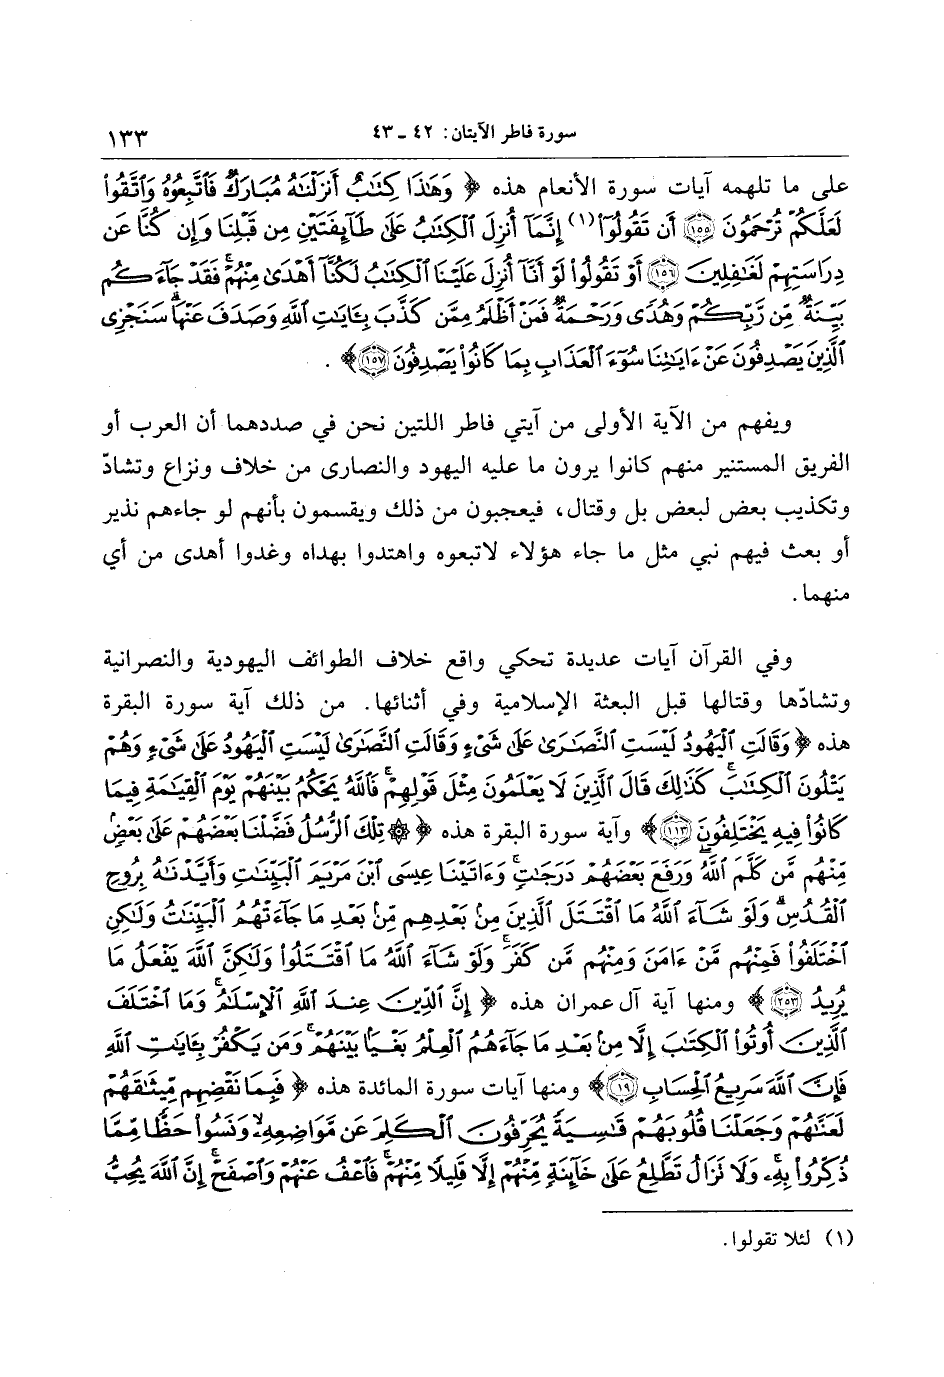 سورة فاطر الآيتان: ٤٢ ـ ٤٣ ١٣٣
على ما تلهمه آيات سورة الأنعام هذه ﴿ وَهَٰذَا كِتَٰبٌ أَنزَلْنَٰهُ مُبَارَكٌ فَٱتَّبِعُوهُ وَٱتَّقُوا۟
لَعَلَّكُمْ تُرْحَمُونَ ١٥٥ أَن تَقُولُوٓا۟(١) إِنَّمَآ أُنزِلَ ٱلْكِتَٰبُ عَلَىٰ طَآئِفَتَيْنِ مِن قَبْلِنَا وَإِن كُنَّا عَن
دِرَاسَتِهِمْ لَغَٰفِلِينَ ١٥٦ أَوْ تَقُولُوا۟ لَوْ أَنَّآ أُنزِلَ عَلَيْنَا ٱلْكِتَٰبُ لَكُنَّآ أَهْدَىٰ مِنْهُمْ ۚ فَقَدْ جَآءَكُم
بَيِّنَةٌ مِّن رَّبِّكُمْ وَهُدًى وَرَحْمَةٌ ۚ فَمَنْ أَظْلَمُ مِمَّن كَذَّبَ بِـَٔايَٰتِ ٱللَّهِ وَصَدَفَ عَنْهَا ۗ سَنَجْزِى
ٱلَّذِينَ يَصْدِفُونَ عَنْ ءَايَٰتِنَا سُوٓءَ ٱلْعَذَابِ بِمَا كَانُوا۟ يَصْدِفُونَ ١٥٧ ﴾ .
ويفهم من الآية الأولى من آيتي فاطر اللتين نحن في صددهما أن العرب أو
الفريق المستنير منهم كانوا يرون ما عليه اليهود والنصارى من خلاف ونزاع وتشادّ
وتكذيب بعض لبعض بل وقتال، فيعجبون من ذلك ويقسمون بأنهم لو جاءهم نذير
أو بعث فيهم نبي مثل ما جاء هؤلاء لاتبعوه واهتدوا بهداه وغدوا أهدى من أي
منهما.
وفي القرآن آيات عديدة تحكي واقع خلاف الطوائف اليهودية والنصرانية
وتشادّها وقتالها قبل البعثة الإسلامية وفي أثنائها. من ذلك آية سورة البقرة
هذه ﴿ وَقَالَتِ ٱلْيَهُودُ لَيْسَتِ ٱلنَّصَٰرَىٰ عَلَىٰ شَىْءٍ وَقَالَتِ ٱلنَّصَٰرَىٰ لَيْسَتِ ٱلْيَهُودُ عَلَىٰ شَىْءٍ وَهُمْ
يَتْلُونَ ٱلْكِتَٰبَ ۗ كَذَٰلِكَ قَالَ ٱلَّذِينَ لَا يَعْلَمُونَ مِثْلَ قَوْلِهِمْ ۚ فَٱللَّهُ يَحْكُمُ بَيْنَهُمْ يَوْمَ ٱلْقِيَٰمَةِ فِيمَا
كَانُوا۟ فِيهِ يَخْتَلِفُونَ ١١٣ ﴾ وآية سورة البقرة هذه ﴿ ۞ تِلْكَ ٱلرُّسُلُ فَضَّلْنَا بَعْضَهُمْ عَلَىٰ بَعْضٍ
مِّنْهُم مَّن كَلَّمَ ٱللَّهُ ۖ وَرَفَعَ بَعْضَهُمْ دَرَجَٰتٍ ۚ وَءَاتَيْنَا عِيسَى ٱبْنَ مَرْيَمَ ٱلْبَيِّنَٰتِ وَأَيَّدْنَٰهُ بِرُوحِ
ٱلْقُدُسِ ۗ وَلَوْ شَآءَ ٱللَّهُ مَا ٱقْتَتَلَ ٱلَّذِينَ مِنۢ بَعْدِهِم مِّنۢ بَعْدِ مَا جَآءَتْهُمُ ٱلْبَيِّنَٰتُ وَلَٰكِنِ
ٱخْتَلَفُوا۟ فَمِنْهُم مَّنْ ءَامَنَ وَمِنْهُم مَّن كَفَرَ ۚ وَلَوْ شَآءَ ٱللَّهُ مَا ٱقْتَتَلُوا۟ وَلَٰكِنَّ ٱللَّهَ يَفْعَلُ مَا
يُرِيدُ ٢٥٣ ﴾ ومنها آية آل عمران هذه ﴿ إِنَّ ٱلدِّينَ عِندَ ٱللَّهِ ٱلْإِسْلَٰمُ ۗ وَمَا ٱخْتَلَفَ
ٱلَّذِينَ أُوتُوا۟ ٱلْكِتَٰبَ إِلَّا مِنۢ بَعْدِ مَا جَآءَهُمُ ٱلْعِلْمُ بَغْيًۢا بَيْنَهُمْ ۗ وَمَن يَكْفُرْ بِـَٔايَٰتِ ٱللَّهِ
فَإِنَّ ٱللَّهَ سَرِيعُ ٱلْحِسَابِ ١٩ ﴾ ومنها آيات سورة المائدة هذه ﴿ فَبِمَا نَقْضِهِم مِّيثَٰقَهُمْ
لَعَنَّٰهُمْ وَجَعَلْنَا قُلُوبَهُمْ قَٰسِيَةً ۖ يُحَرِّفُونَ ٱلْكَلِمَ عَن مَّوَاضِعِهِۦ ۙ وَنَسُوا۟ حَظًّا مِّمَّا
ذُكِّرُوا۟ بِهِۦ ۚ وَلَا تَزَالُ تَطَّلِعُ عَلَىٰ خَآئِنَةٍ مِّنْهُمْ إِلَّا قَلِيلًا مِّنْهُمْ ۖ فَٱعْفُ عَنْهُمْ وَٱصْفَحْ ۚ إِنَّ ٱللَّهَ يُحِبُّ
(١) لئلا تقولوا.